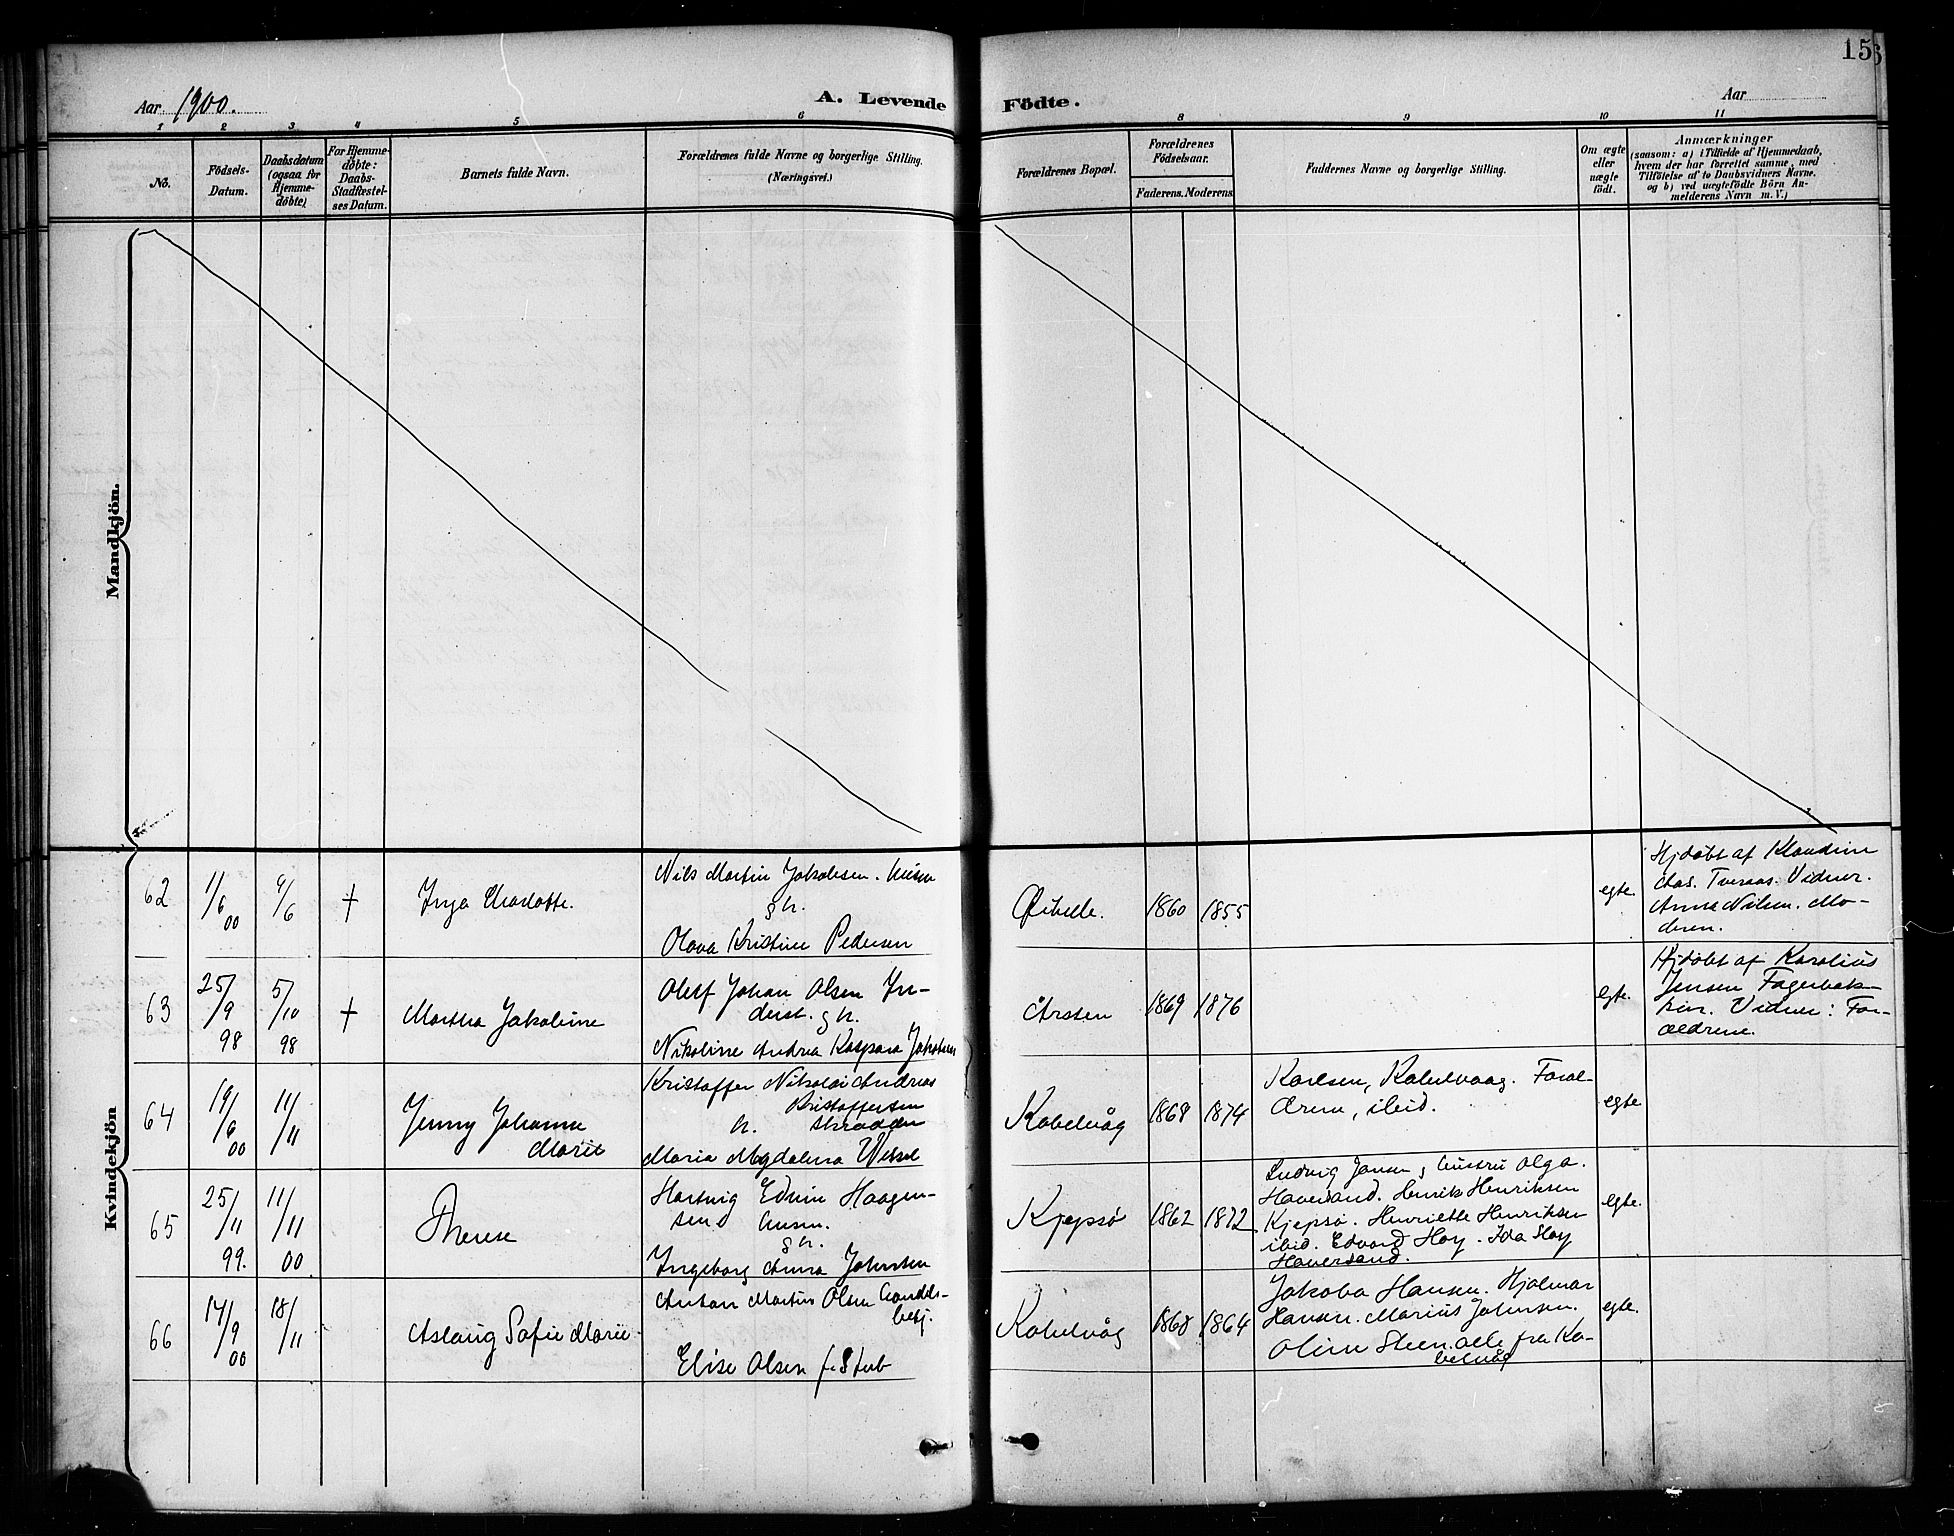 156
Aar 1900.
A. Levende Födte.
Aar
1 2 3 4 5 6 8 9 10 11
No.
Födsels-Datum.
Daabsdatum (ogsaa for Hjemme-döbte)
For Hjemme-döbte: Daabs-Stadfæstel-ses Datum.
Barnets fulde Navn.
Forældrenes fulde Navne og borgerlige Stilling. (Næringsvei.)
Forældrenes Bopæl.
Forældrenes Födselsaar.
Faderens. Moderens.
Faddernes Navne og borgerlige Stilling.
Om ægte eller uægte födt.
Anmærkninger
(saasom: a) i Tilfælde af Hjemmedaab,
hvem der har forrettet samme, med
Tilföielse af to Daabsvidners Navne,
og b) ved uægtefödte Börn An-
melderens Navn m. V.)
Mandkjön.
Kvindekjön
62 1/6 00 9/6 + Inga Charlotte.
Nils Martin Jakobsen.
g h.
Olava Kristine Pedersen
Ørbelle. 1860 1855 egte.
Hjdøbt af Klaudine
Chas. Tveraas. Vidner.
Anna Nilsen. Mo-
deren.
63 25/9 98 5/10 98 + Martha Jakobine
Oluf Johan Olsen In-
derst. g h.
Nikoline Andrea Kaspara Jakobsen
Årsten 1869 1876 egte.
Hjdøbt af Karolius
Jensen Fagerbak-
ken. Vidner: For-
ældrene.
64 19/6 00 11/11 Jenny Johanna
Marie
Kristoffer Nikolai Andreas
Kristoffersen
h. skrædder
Maria Magdalena Wessel
Kabelvåg 1868 1874
Karlsen, Kabelvaag. Foræl-
drene, ibid.
egte
65 25/11 99. 11/11 00 Therese
Hartvig Edvin Haagen-
sen
g h.
Ingeborg Anna Johnsen
Kjepsø 1862 1872
Ludvig Jansen, Hustru Olga.
Haversand. Henrik Henriksen
Kjepsø. Henriette Henriksen
ibid. Edvard Hoy. Ida Hoy
Haversand.
egte.
66 17/9 00 18/11 Aslaug Sofie Marie
Anton Martin Olsen Handels-
betj.
Elise Olsen f. Stub
Kabelvåg 1868 1864
Jakoba Hansen. Hjalmar
Hansen. Marius Johnsen.
Oline Steen. alle fra Ka-
belvåg
egte.